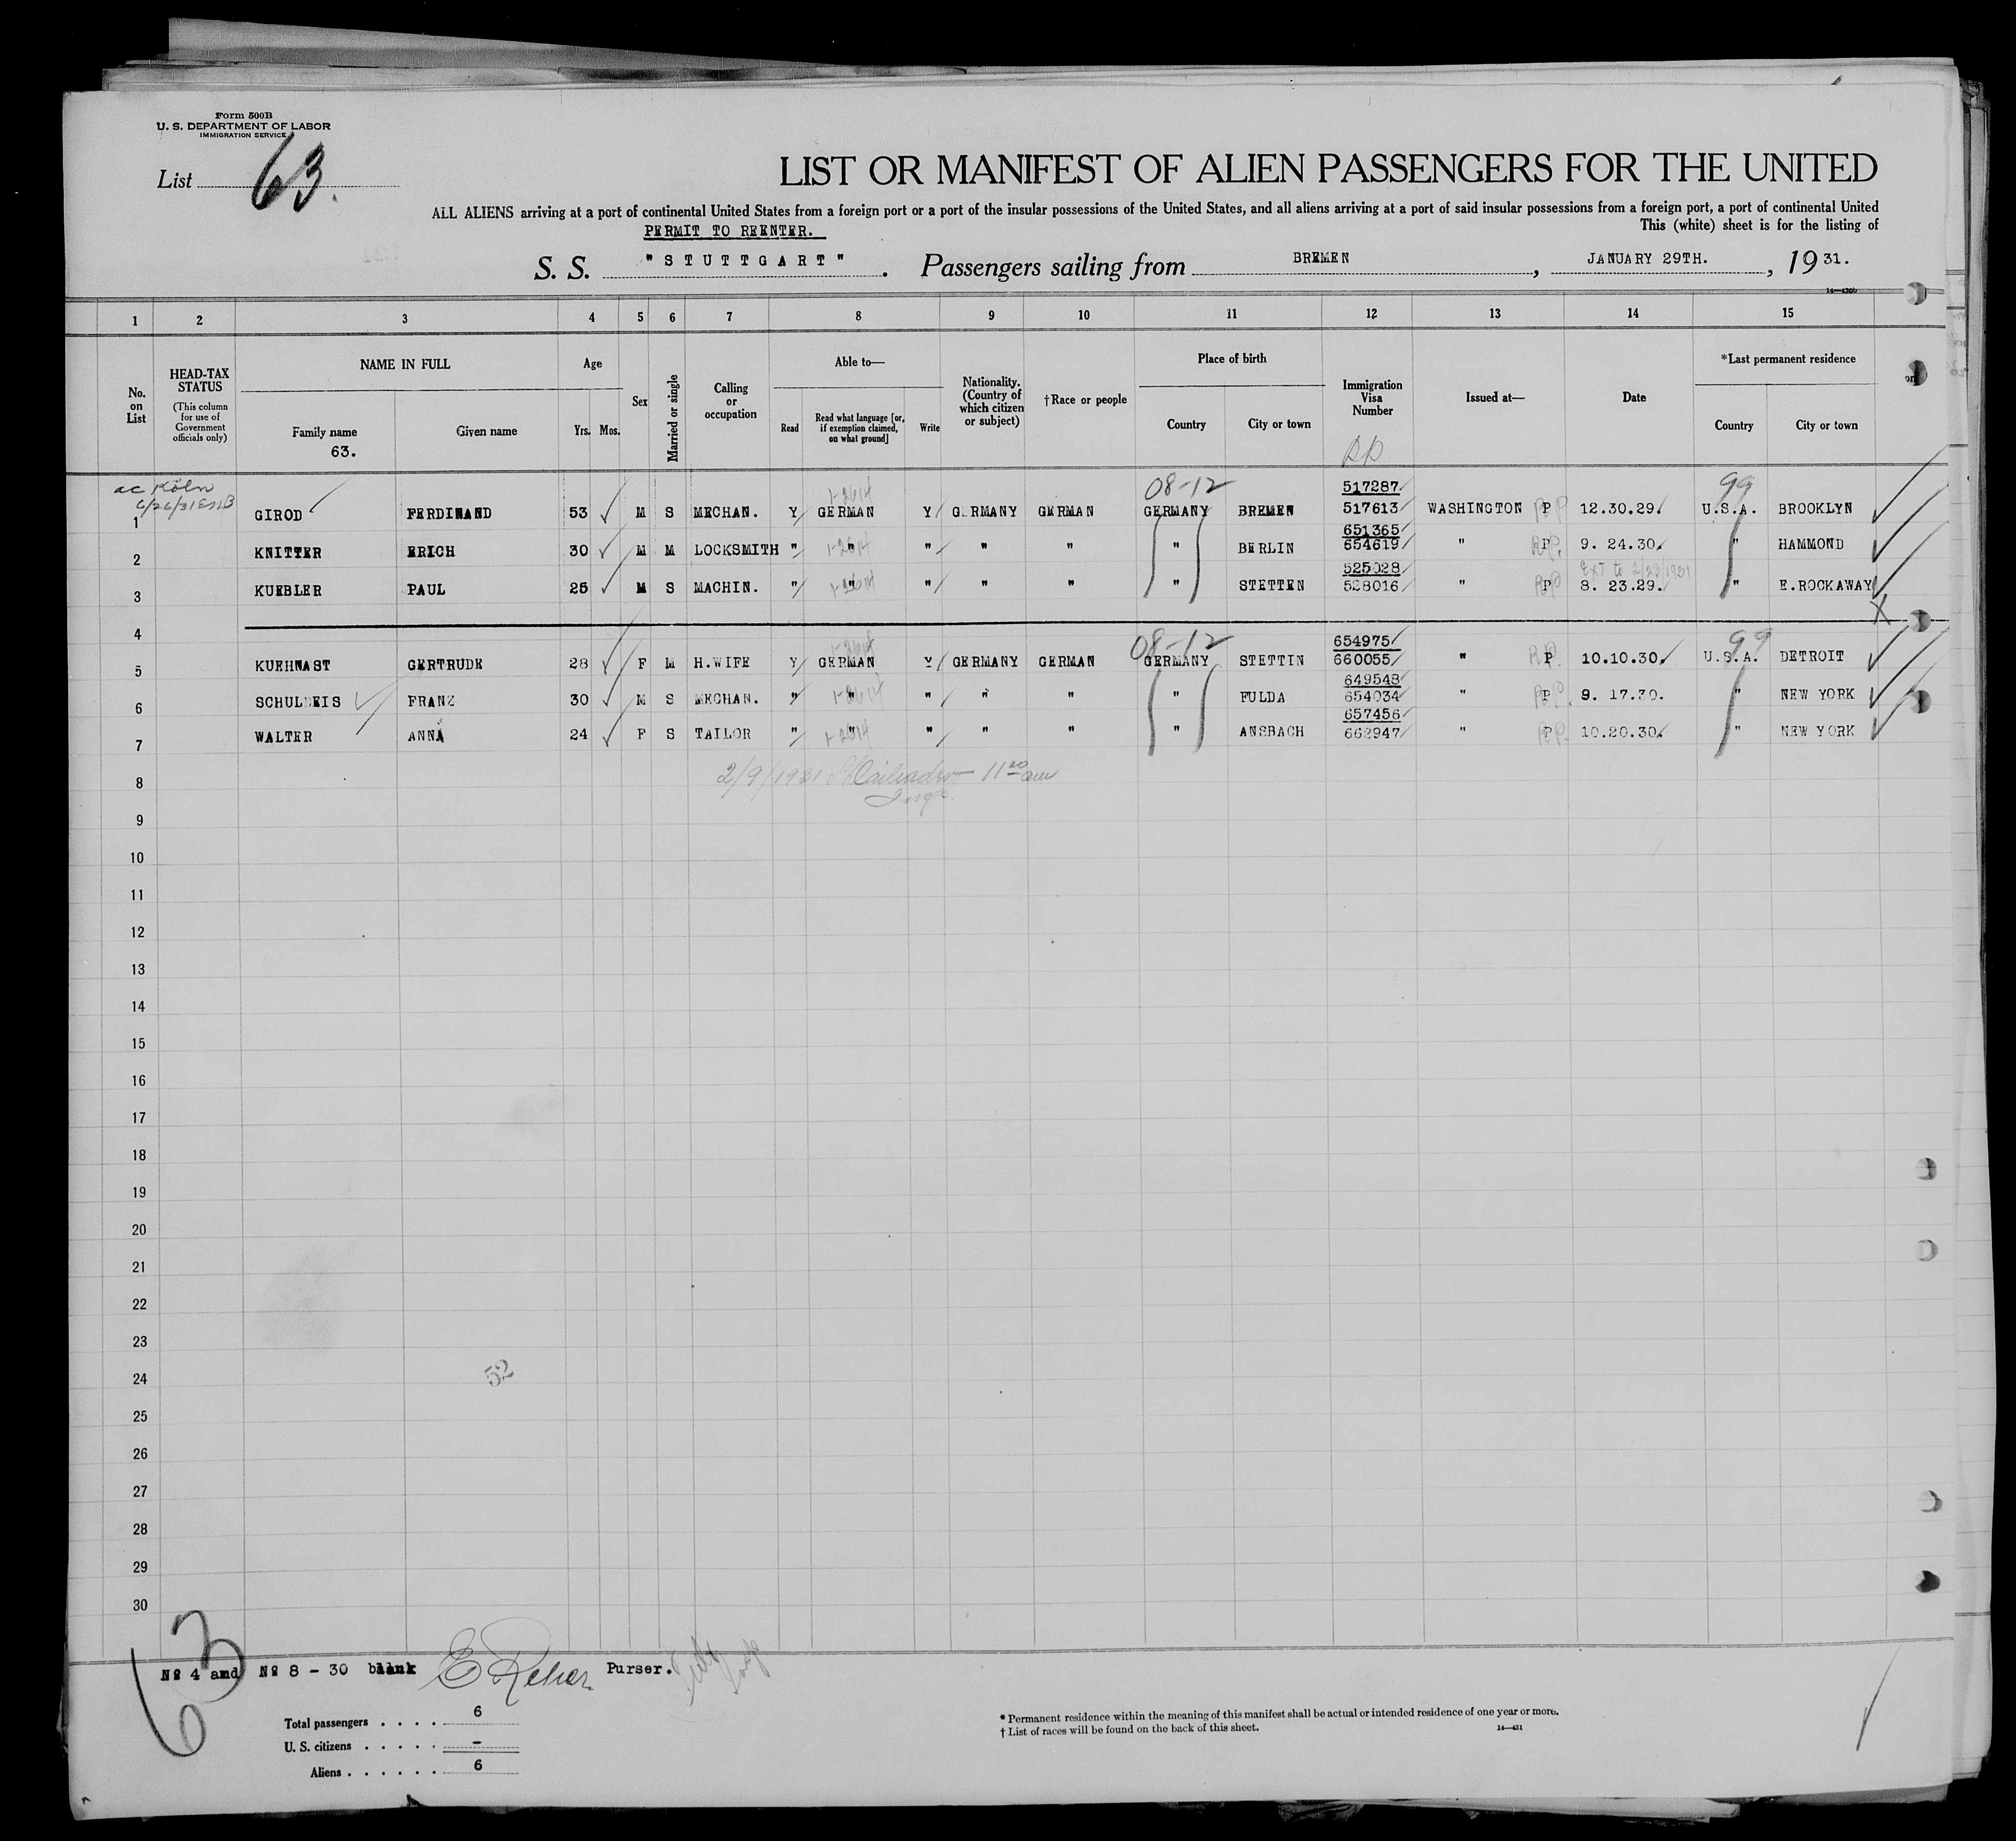 Form 500B
U. S. DEPARTMENT OF LABOR
IMMIGRATION SERVICE
List 63.
LIST OR MANIFEST OF ALIEN PASSENGERS FOR THE UNITED
ALL ALIENS arriving at a port of continental United States from a foreign port or a port of the insular possessions of the United States, and all aliens arriving at a port of said insular possessions from a foreign port, a port of continental United
PERMIT TO REENTER.
This (white) sheet is for the listing of
S. S. "STUTTGART" . Passengers sailing from BREMEN , JANUARY 29TH. , 19 31.
1 2 3 4 5 6 7 8 9 10 11 12 13 14 15
No. on List
HEAD-TAX STATUS (This column for use of Government officials only)
NAME IN FULL
Family name
63.
Given name
Age
Yrs. Mos.
Sex
Married or single
Calling or occupation
Able to—
Read
Read what language [or, if exemption claimed, on what ground]
Write
Nationality. (Country of which citizen or subject)
†Race or people
Place of birth
Country
City or town
Immigration Visa Number
Issued at—
Date
*Last permanent residence
Country
City or town
ac Köln
08-12 517287 99
1 GIROD FERDINAND 53 M S MECHAN. Y GERMAN Y GERMANY GERMAN GERMANY BREMEN 517613 WASHINGTON P 12.30.29. U.S.A. BROOKLYN
651365
2 KNITTER ERICH 30 M M LOCKSMITH " " " " " " BERLIN 654619 " P 9. 24.30. " HAMMOND
525028 Ext to 2/23/1931
3 KUEBLER PAUL 25 M S MACHIN. " " " " " " STETTEN 528016 P 8. 23.29. " E.ROCKAWAY
X
4
08-12 654975 99
5 KUEHNAST GERTRUDE 28 F M H.WIFE Y GERMAN Y GERMANY GERMAN GERMANY STETTIN 660055 " P 10.10.30. U.S.A. DETROIT
649548
6 SCHULDEIS FRANZ 30 M S MECHAN. " " " " " " FULDA 654034 P 9. 17.30. " NEW YORK
657456
7 WALTER ANNA 24 F S TAILOR " " " " " " ANSBACH 662947 " P 10.20.30. " NEW YORK
2/9/1931 11 20 am
8
9
10
11
12
13
14
15
16
17
18
19
20
21
22
23
24
52
25
26
27
28
29
30
63
№ 4 and № 8 - 30 blank Purser.
Total passengers . . . . 6
U. S. citizens . . . . . -
Aliens . . . . . . 6
* Permanent residence within the meaning of this manifest shall be actual or intended residence of one year or more.
† List of races will be found on the back of this sheet.
14—431